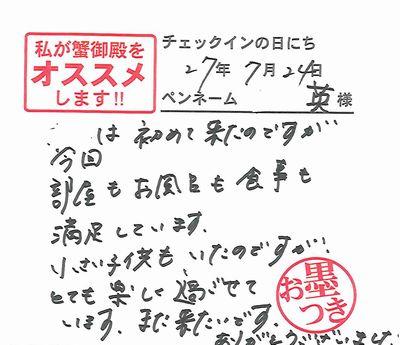 私が蟹御殿を
オススメ
します!!
チェックインの日にち
27年 7月 24日
ペンネーム 英 様
は 初めて 来たのですが
今回
部屋も お風呂も 食事も
満足しています.
小さい子供も いたのですが!
とても 楽しく 過ごせて
います. また 来たいです.
ありがとうございました.
お墨つき